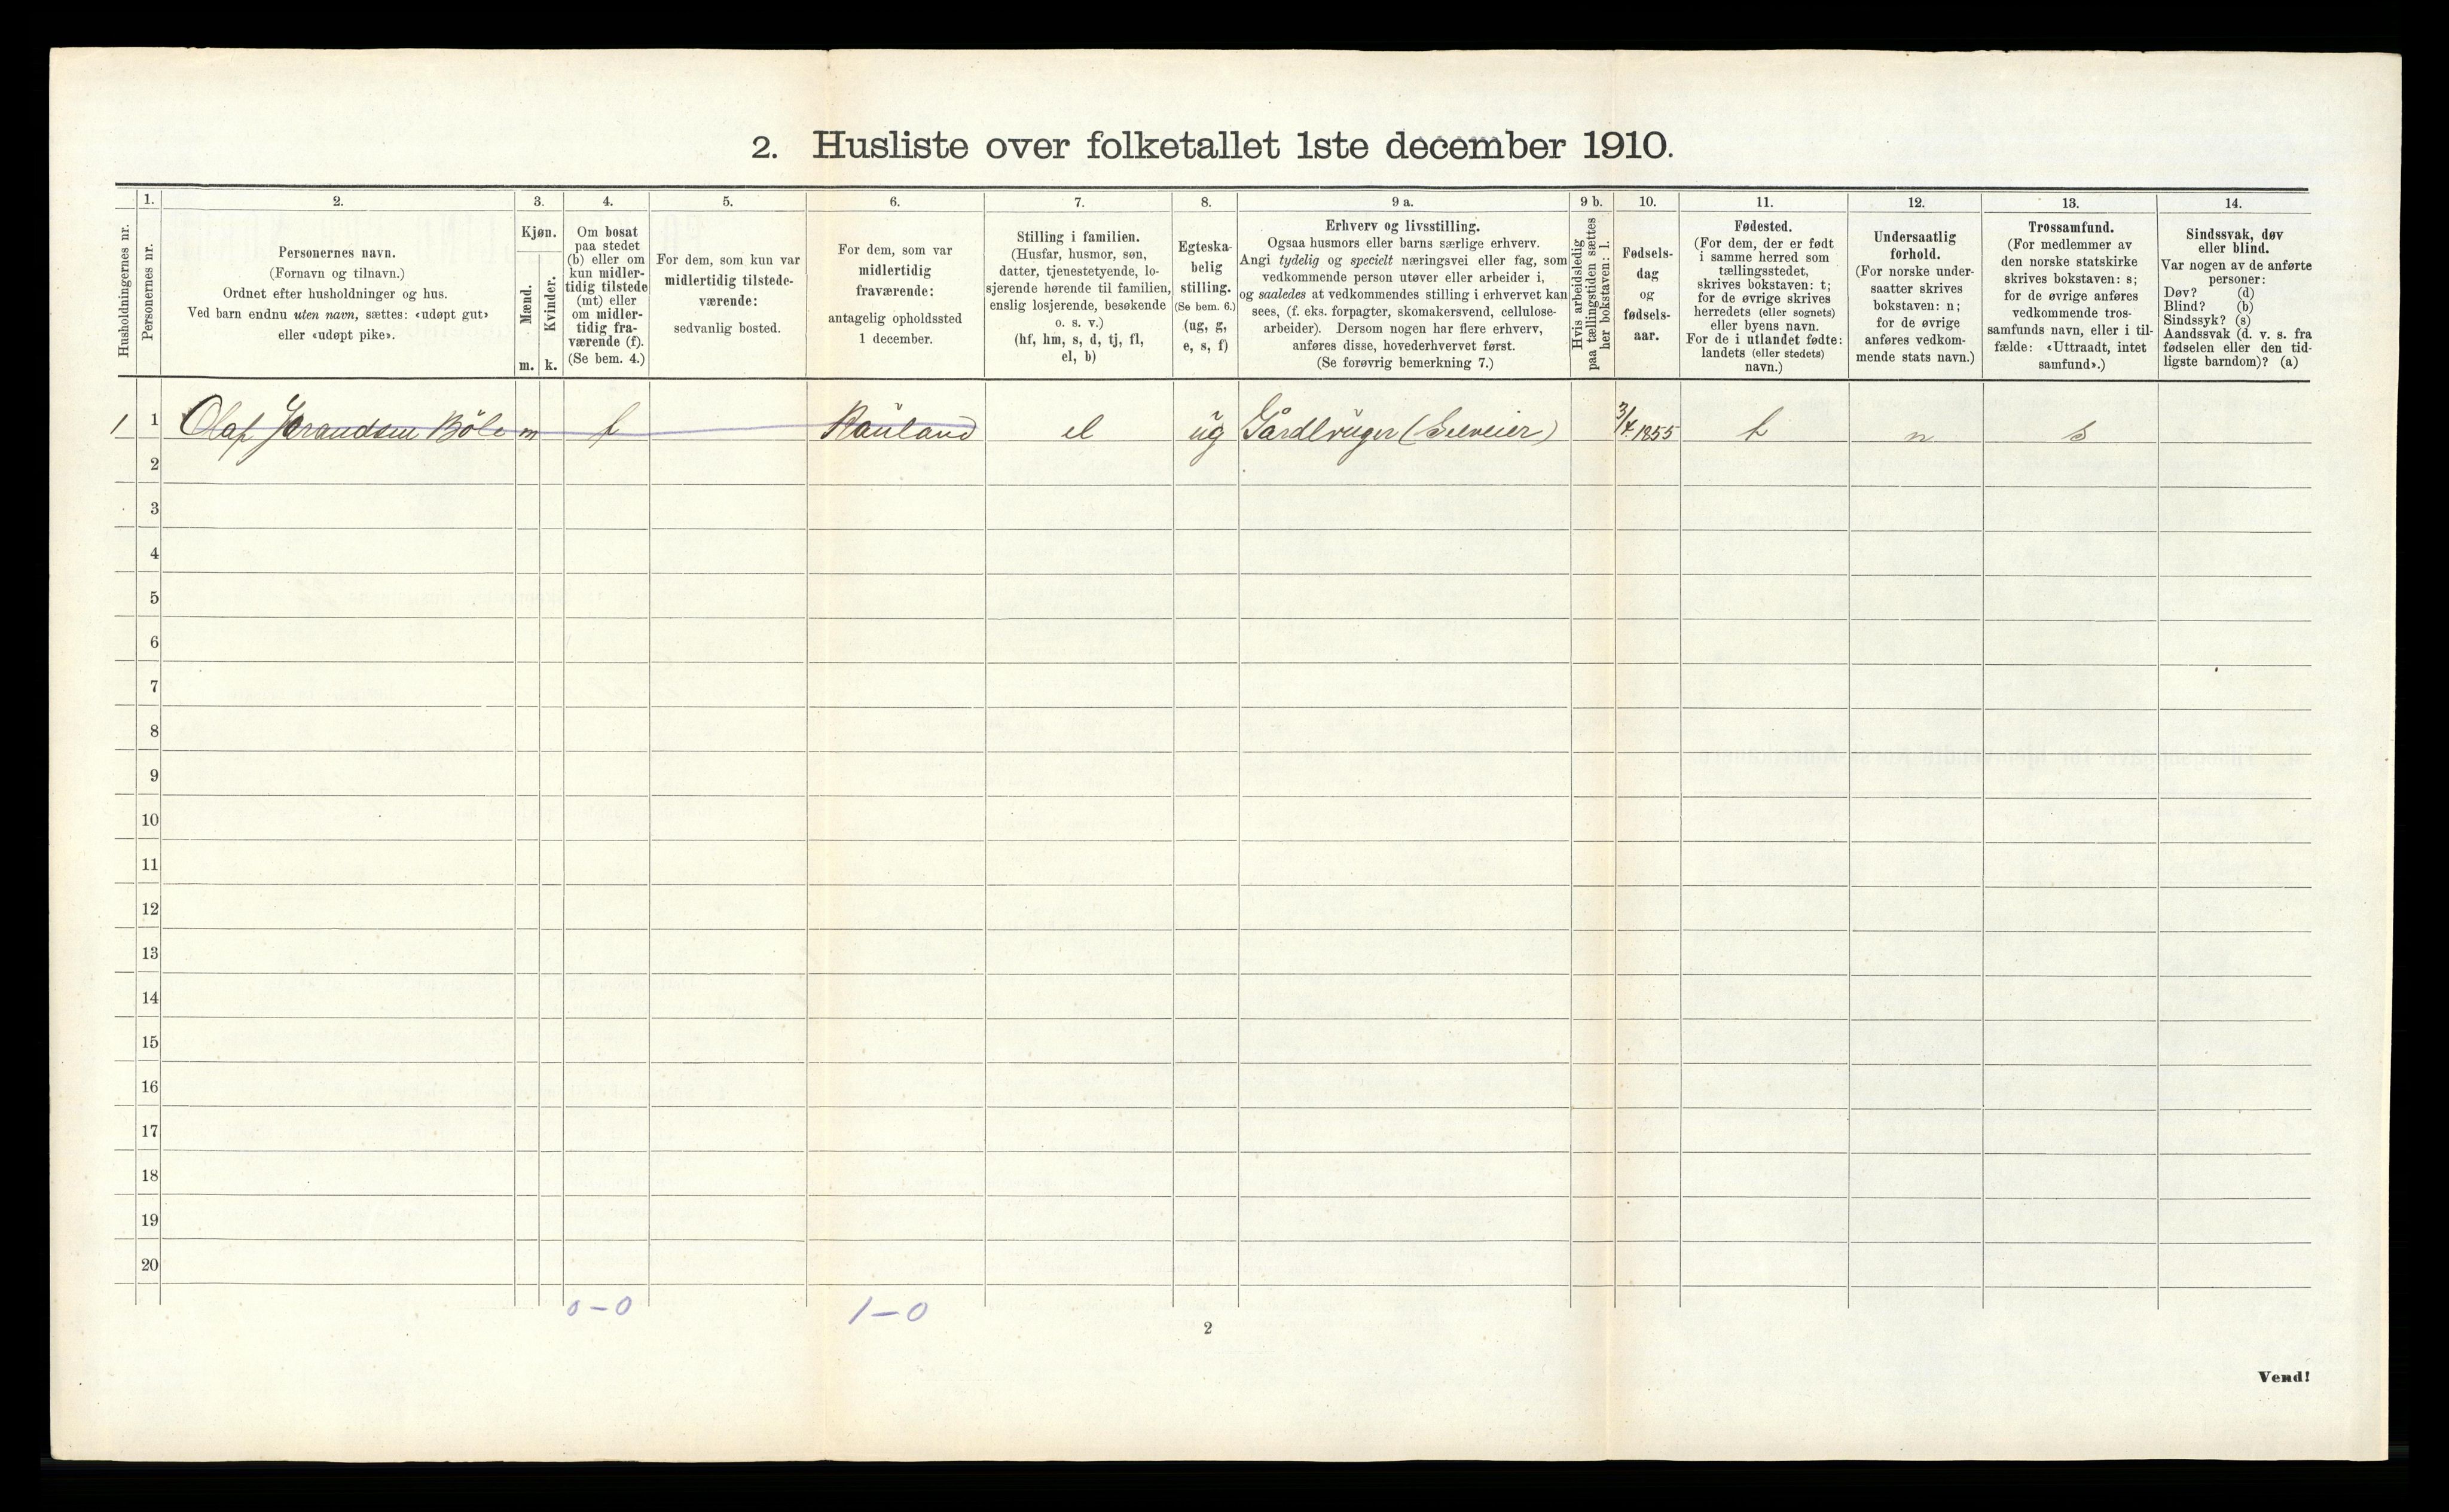 2. Husliste over folketallet 1ste december 1910.
Husholdningernes nr.
1.
Personernes nr.
2.
Personernes navn.
(Fornavn og tilnavn.)
Ordnet efter husholdninger og hus.
Ved barn endnu uten navn, sættes: «udøpt gut»
eller «udøpt pike».
3.
Kjøn.
Mænd.
m.
Kvinder.
k.
4.
Om bosat
paa stedet
(b) eller om
kun midler-
tidig tilstede
(mt) eller
om midler-
tidig fra-
værende (f).
(Se bem. 4.)
5.
For dem, som kun var
midlertidig tilstede-
værende:
sedvanlig bosted.
6.
For dem, som var
midlertidig
fraværende:
antagelig opholdssted
1 december.
7.
Stilling i familien.
(Husfar, husmor, søn,
datter, tjenestetyende, lo-
sjerende hørende til familien,
enslig losjerende, besøkende
o. s. v.)
(hf, hm, s, d, tj, fl,
el, b)
8.
Egteska-
belig
stilling.
(Se bem. 6.)
(ug, g,
e, s, f)
9 a.
Erhverv og livsstilling.
Ogsaa husmors eller barns særlige erhverv.
Angi tydelig og specielt næringsvei eller fag, som
vedkommende person utøver eller arbeider i,
og saaledes at vedkommendes stilling i erhvervet kan
sees, (f. eks. forpagter, skomakersvend, cellulose-
arbeider). Dersom nogen har flere erhverv,
anføres disse, hovederhvervet først.
(Se forøvrig bemerkning 7.)
9 b.
Hvis arbeidsledig
paa tællingstiden sættes
her bokstaven: l.
10.
Fødsels-
dag
og
fødsels-
aar.
11.
Fødested.
(For dem, der er født
i samme herred som
tællingsstedet,
skrives bokstaven: t;
for de øvrige skrives
herredets (eller sognets)
eller byens navn.
For de i utlandet fødte:
landets (eller stedets)
navn.)
12.
Undersaatlig
forhold.
(For norske under-
saatter skrives
bokstaven: n;
for de øvrige
anføres vedkom-
mende stats navn.)
13.
Trossamfund.
(For medlemmer av
den norske statskirke
skrives bokstaven: s;
for de øvrige anføres
vedkommende tros-
samfunds navn, eller i til-
fælde: «Uttraadt, intet
samfund».)
14.
Sindssvak, døv
eller blind.
Var nogen av de anførte
personer:
Døv? (d)
Blind? (b)
Sindssyk? (s)
Aandssvak (d. v. s. fra
fødselen eller den tid-
ligste barndom)? (a)
1 1 Olaf Jorandsen Böle m f Rauland el ug Gårdbruger (Selveier) 3/4 1855 t n s
2
3
4
5
6
7
8
9
10
11
12
13
14
15
16
17
18
19
20
0 – 0 1 – 0
2
Vend!